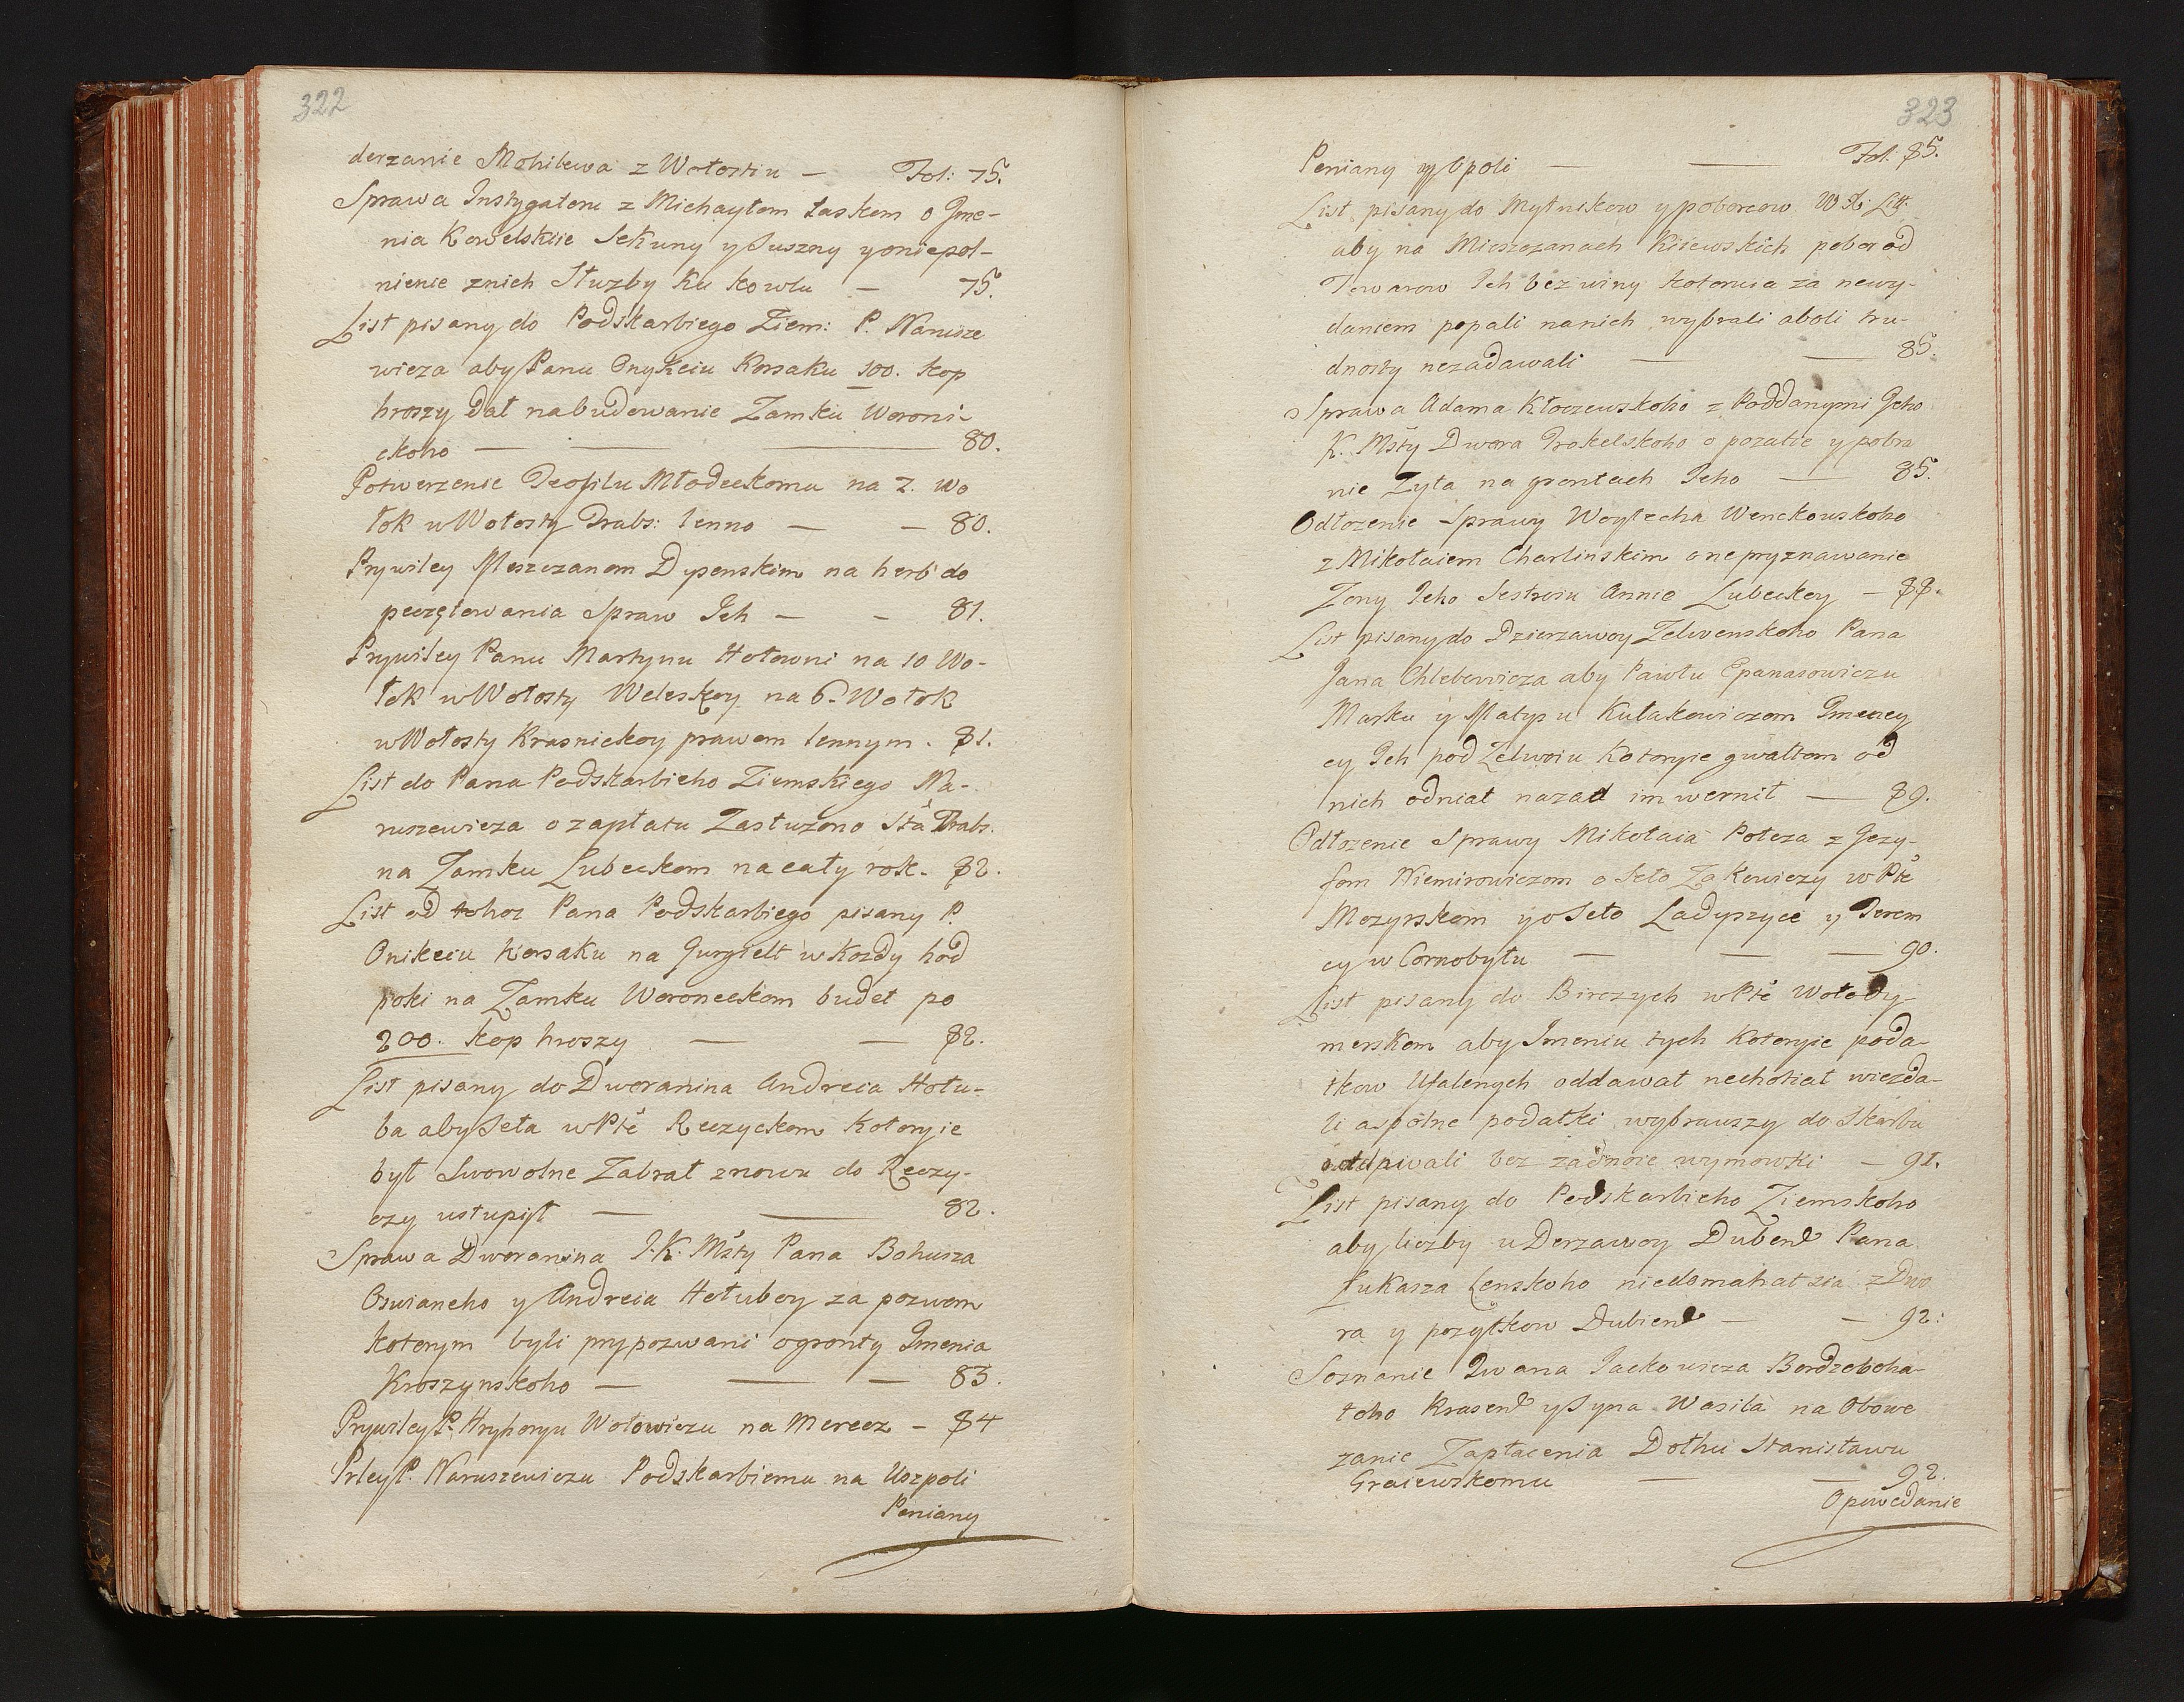 322
derzanie Mohilewa z Wołostiu — Fol: 75.
Sprawa Instygatora z Michayłom Łaskom o Jme-
nia Kowelskiie Sekuny y Suszny y o niepoł-
nienie z nich Służby Ku Kowlu — 75.
List pisany do Podskarbiego Ziem: P. Narusze
wicza aby Panu Onykciu Korsaku 100. kop
hroszy dał na budowanie Zamku Woroni-
ckoho — — — 80.
Potwerzenie Teofilu Młodeckomu na 7. Wo
łok w Wołosty Drabs: lenno — — 80.
Prywiley Meszczanom Dysenskim na herb do
peczętowania Spraw Jch — - 81.
Prywiley Panu Martynu Hołowni na 10 Wo-
łok w Wołosty Weleskoy na 6. Wołok
w Wołosty Krasnickoy prawem lennym. 81.
List do Pana Podskarbieho Ziemskiego Na-
ruszewicza o zapłatu Zasłużono Sta Drabs.
na Zamku Lubeckom na cały rok. 82.
List od tohoz Pana Podskarbiego pisany P.
Onikciu Korsaku na Jurgielt w Kożdy hod
poki na Zamku Woroneckom budet po
200. kop hroszy — — 82.
List pisany do Dworanina Andreia Hołu-
ba aby Seła w Płe Reczyckom Kotoryie
był Swowolne Zabrał znowu do Reczy-
czy ustupił — — 82.
Sprawa Dworanina J. K. Msty Pana Bohusza
Oswianeho y Andreia Hołuboy za pozwom
kotorym byli prypozwani o gronty Jmenia
Kroszynskoho — — — 83.
Prywiley P. Hryhoryu Wołowiczu na Merecz - 84
Prley P. Naruszewiczu Podskarbiemu na Uszpoli
Peniany
323
Peniany y Opoli — — Fol. 85.
List pisany do Mytnikow y poborcow W. X. Litt.
aby na Mieszczanach Kiiewskich pobor od
Towarow Jch bez winy kotoruia za newy-
daniem popali na nich wybrali aboli tru-
dnosty nezadawali — — 85.
Sprawa Adama Kłoczewskoho z Poddanymi Jeho
K. Msty Dwora Trokelskoho o pozatie y pobra
nie Zyta na grontach Jeho — 85.
Odłozenie Sprawy Woytecha Wenckowskoho
z Mikołaiem Charlińskim o nepryznawanie
Zony Jeho Sestroiu Annie Lubeckoy — 88.
List pisany do Dzierzawcy Zelwenskoho Pana
Jana Chlebowicza aby Pawłu Epanasowiczu
Marku y Matysu Kułakowiczom Jmency
cy Jch pod Zelwoiu Kotoryie gwałtom od
nich odniał nazad im wernił — 89.
Odłozenie Sprawy Mikołaia Poteza z Jezy-
fom Niemirowiczom o Seło Zakowiczy w Płe
Mozyrskom y o Seło Ladyszyce y Terem
cy w Cornobylu — — — 90.
List pisany do Birczych w Płe Wołody-
merskom aby Jmeniu tych kotoryie poda-
tkow Ufalenych oddawat nechotiat wiezda-
li a społne podatki wybrauszy do Skarbu
bez zadnoie wymowki — 91.
List pisany do Podskarbieho Ziemskoho
aby liczby u Derzawcy Duben Pana
Łukasza Lenskoho niedomahał sia z Dwo
ra y pozytkow Dubien — — 92:
Soznanie Jwana Jackowicza Bordzoboha-
toho Krasen y Syna Wasila na Obowe
zanie Zapłacenia Dołhu Stanisławu
Graiewskomu — — 92.
Opowedanie